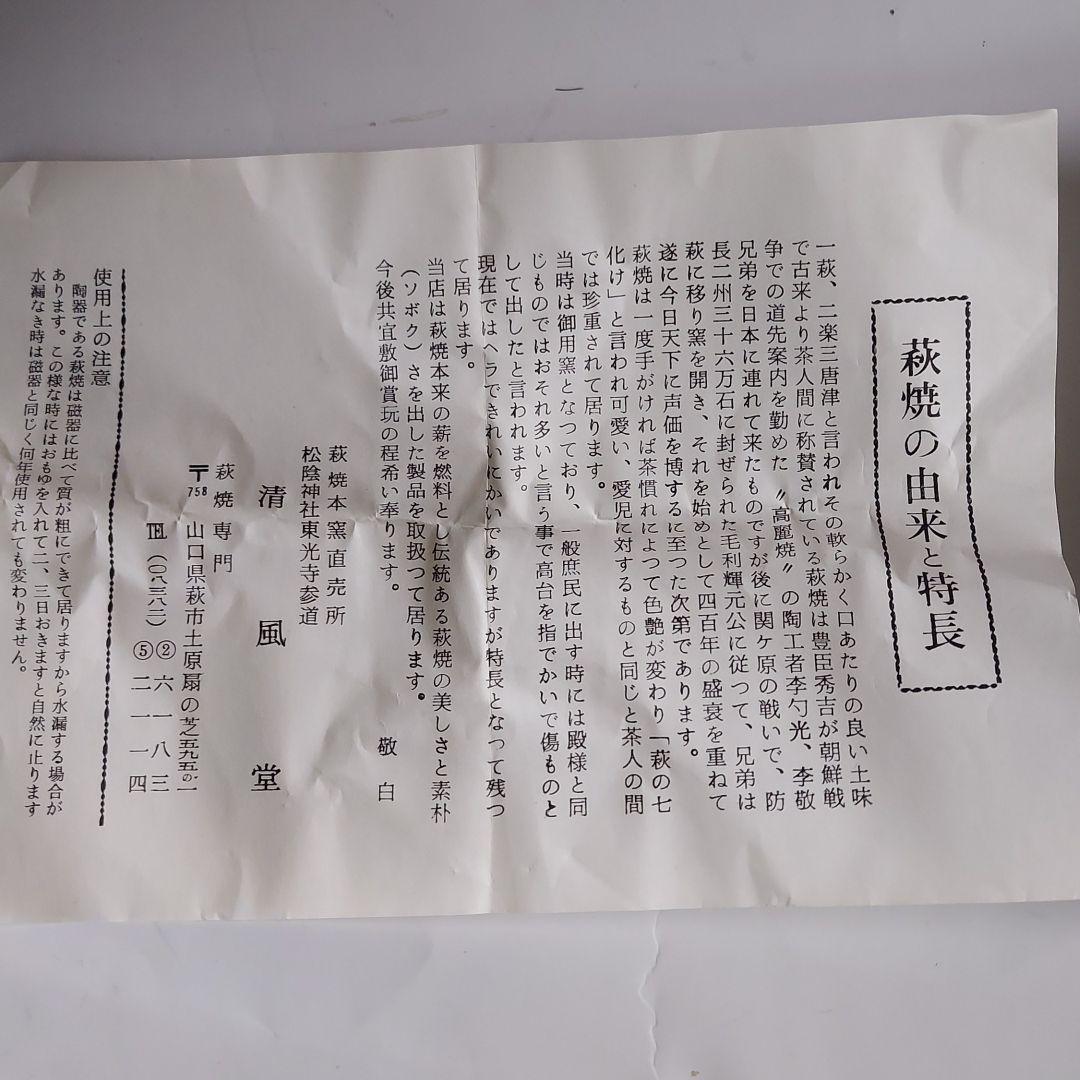 萩焼の由来と特長
一萩、二楽三唐津と言われその軟らかく口あたりの良い土味
で古来より茶人間に称賛されている萩焼は豊臣秀吉が朝鮮戦
争での道先案内を勤めた〝高麗焼〟の陶工者李勺光、李敬
兄弟を日本に連れて来たものですが後に関ケ原の戦いで、防
長二州三十六万石に封ぜられた毛利輝元公に従つて、兄弟は
萩に移り窯を開き、それを始めとして四百年の盛衰を重ねて
遂に今日天下に声価を博するに至つた次第であります。
萩焼は一度手がければ茶慣れによつて色艶が変わり「萩の七
化け」と言われ可愛い、愛児に対するものと同じと茶人の間
では珍重されて居ります。
当時は御用窯となつており、一般庶民に出す時には殿様と同
じものではおそれ多いと言う事で高台を指でかいで傷ものと
して出したと言われます。
現在ではヘラできれいにかいでありますが特長となつて残つ
て居ります。
当店は萩焼本来の薪を燃料とし伝統ある萩焼の美しさと素朴
（ソボク）さを出した製品を取扱つて居ります。
今後共宜敷御賞玩の程希い奉ります。
敬白
萩焼本窯直売所
松陰神社東光寺参道
清風堂
萩焼専門
〒758 山口県萩市土原扇の芝五九五の一
TEL（〇八三八二）②六一八三
⑤二一一四
使用上の注意
陶器である萩焼は磁器に比べて質が粗にできて居りますから水漏する場合が
あります。この様な時にはおもゆを入れて二、三日おきますと自然に止ります
水漏なき時は磁器と同じく何年使用されても変わりません。